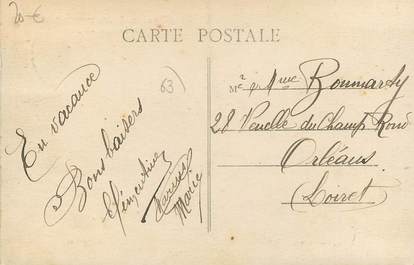 20 €
CARTE POSTALE
63)
En vacance
Bons baisers
Clémentine
Marie
Mr & Mme Bonnardy
28 Venelle du Champ Rond
Orléans
Loiret